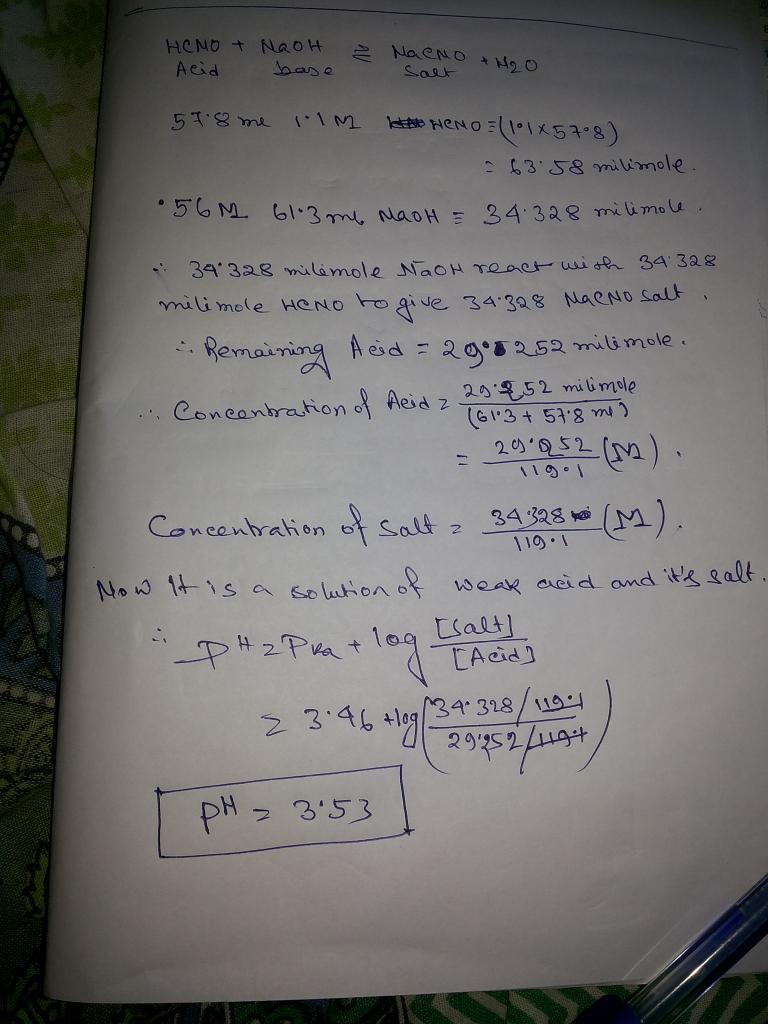 HCNO + NaOH ⇌ NaCNO + H2O
Acid base salt
57.8 ml 1.1 M HCNO = (1.1 x 57.8)
= 63.58 milimole.
.56 M 61.3 ml NaOH = 34.328 milimole.
∴ 34.328 milimole NaOH react with 34.328
milimole HCNO to give 34.328 NaCNO salt,
∴ Remaining Acid = 29.252 milimole.
∴ Concentration of Acid = 29.252 milimole / (61.3 + 57.8 ml)
= 29.252 / 119.1 (M).
Concentration of salt = 34.328 / 119.1 (M).
Now It is a solution of weak acid and it's salt.
∴ PH = Pka + log [salt] / [Acid]
= 3.46 + log (34.328/119.1 / 29.252/119.1)
PH = 3.53